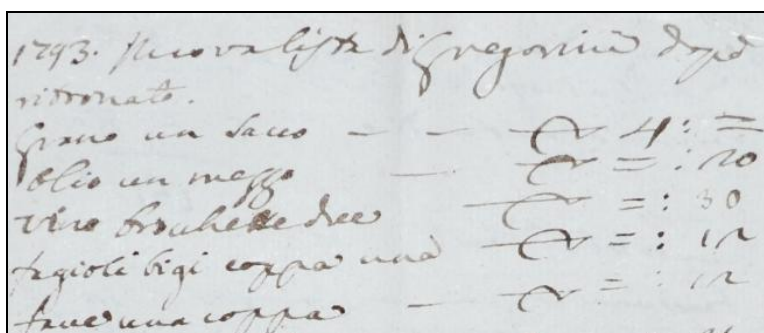 1793. Nuova lista di Gregorini dopo
ritornato.
Grano un sacco — — 4: =
Olio un mezzo — = : 20
vino brochette due = : 30
fagioli bigi coppa una = : 12
fave una coppa — = : 12